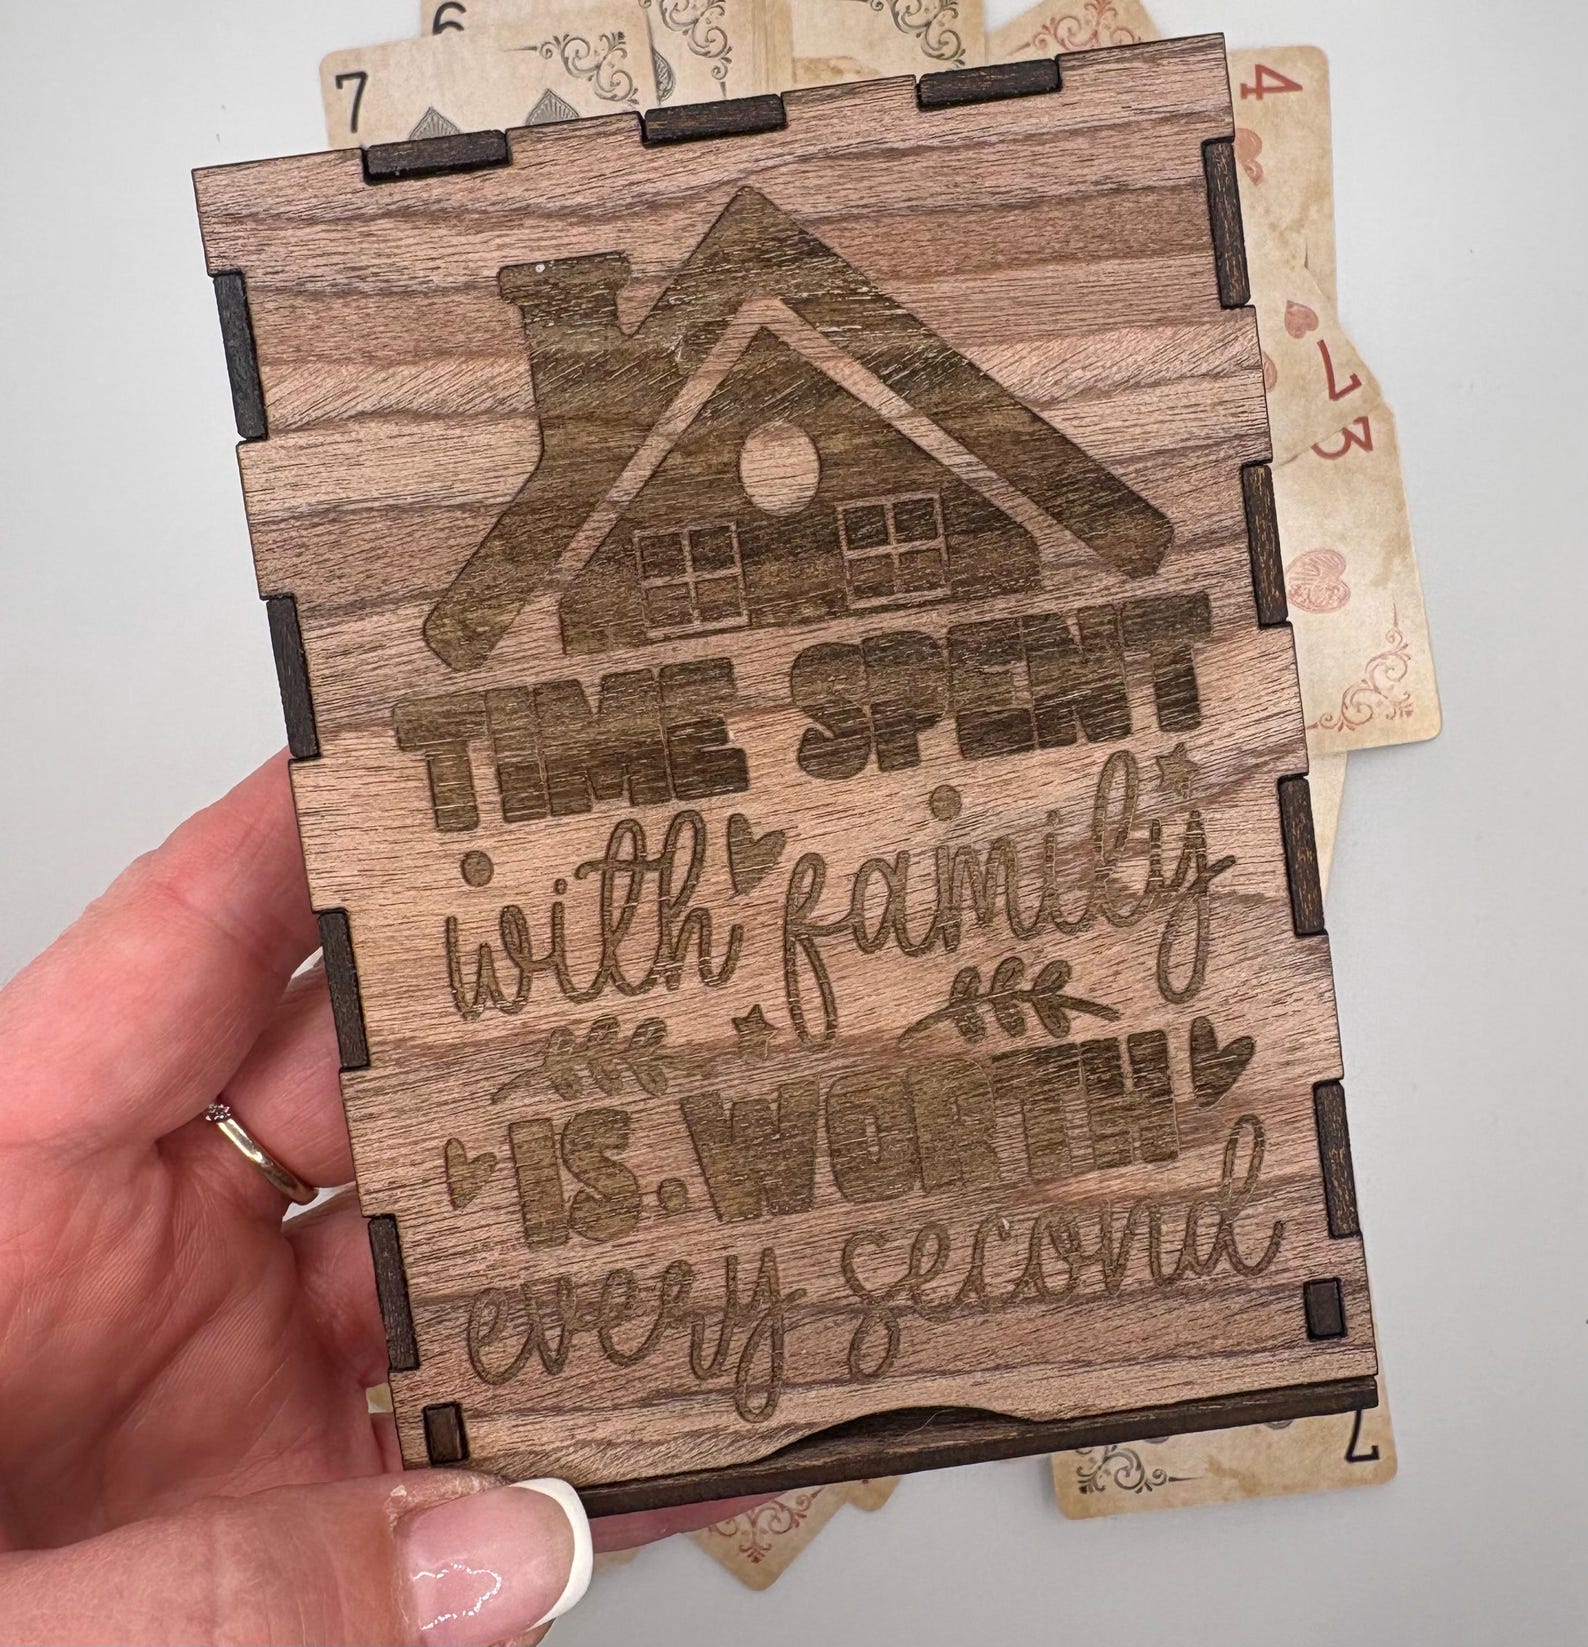 6
7
4
7
3
TIME SPENT
with family
IS. WORTH
every second
7